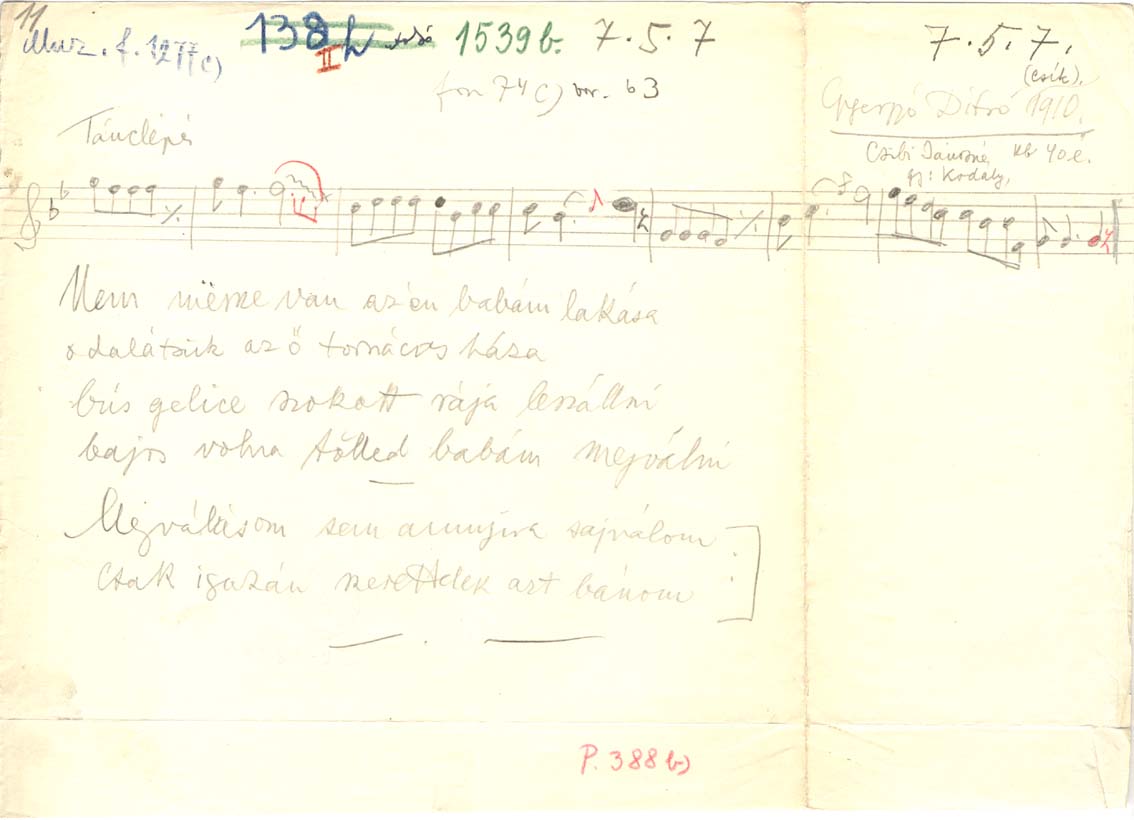 11
Muz. f. 1277 c)
138 h alsó
II
1539 b.
7.5.7
7.5.7.
fon 74 c) var. b3
(Csík).
Gyergyó Ditró 1910.
Tánclépés
Csibi Jánosné, kb 40 é.
gy: Kodály,
Nem messze van az én babám lakása
odalátszik az ő tornácos háza
bús gelice szokott rája leszállni
bajos volna tőlled babám megválni
Megválásom sem annyira sajnálom
Csak igazán szerettelek azt bánom
P. 388 b)